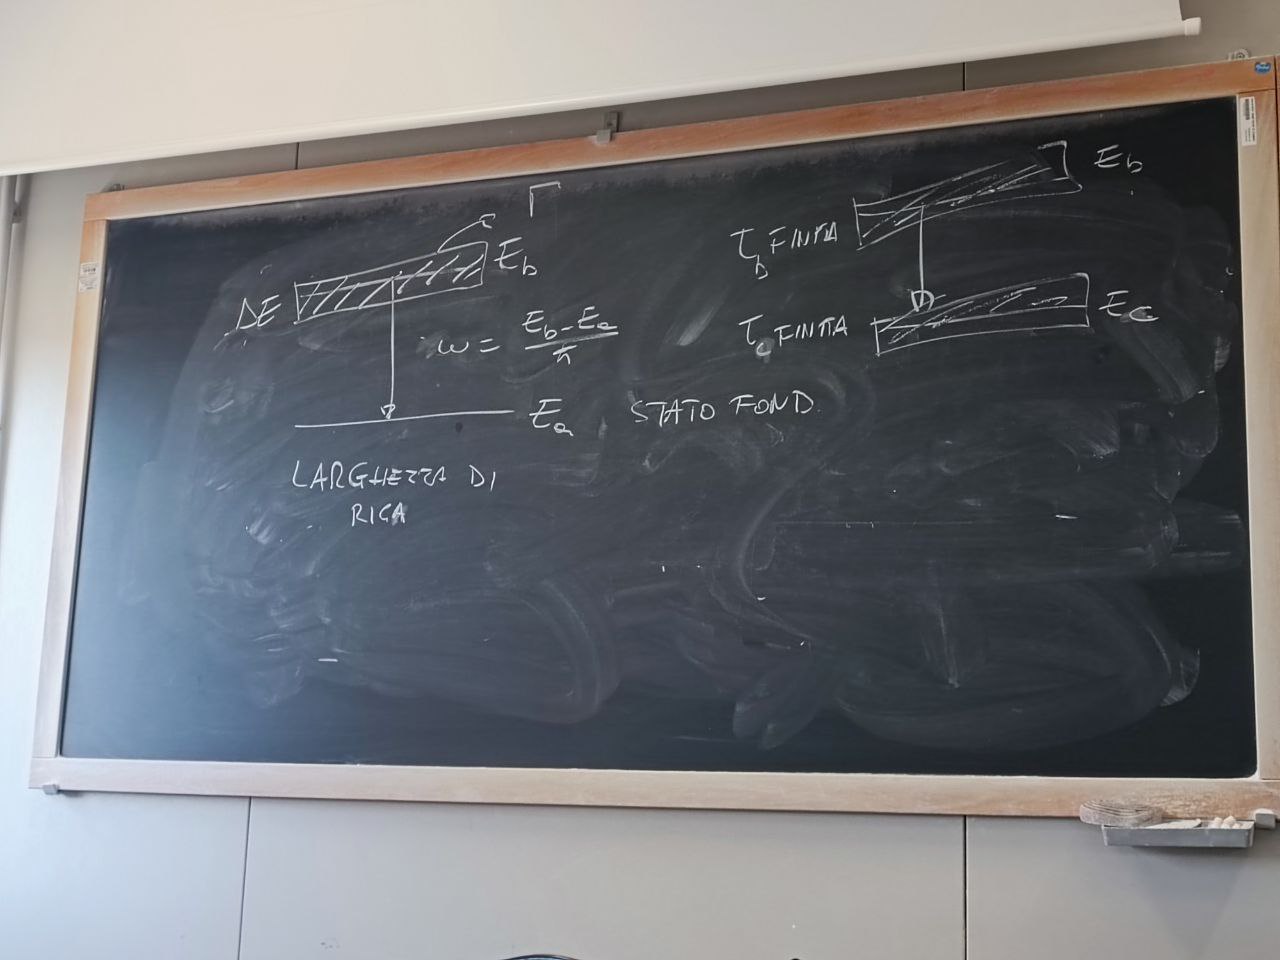 Γ
τ
ΔE
E_b
ω = (E_b - E_a) / ħ
E_a STATO FOND.
LARGHEZZA DI
RIGA
E_b
τ_b FINITA
τ_c FINITA
E_c